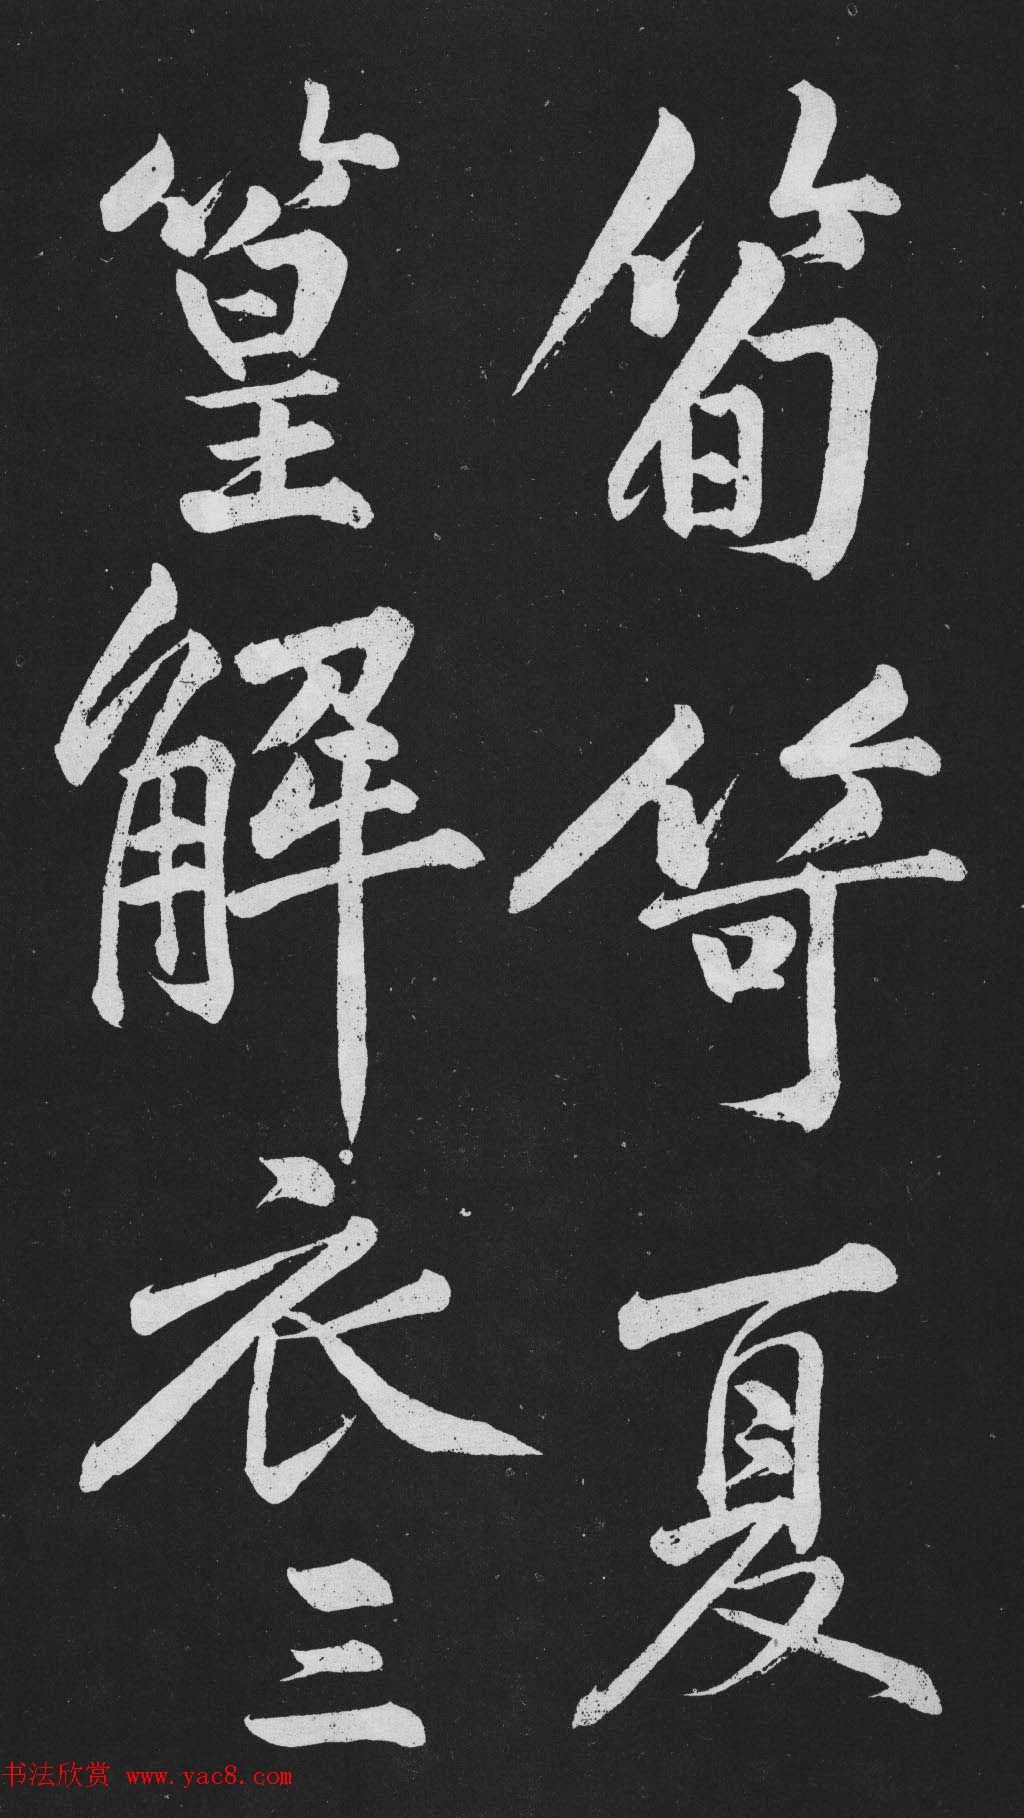 筍苛夏
篁解衣三
书法欣赏 www.yac8.com